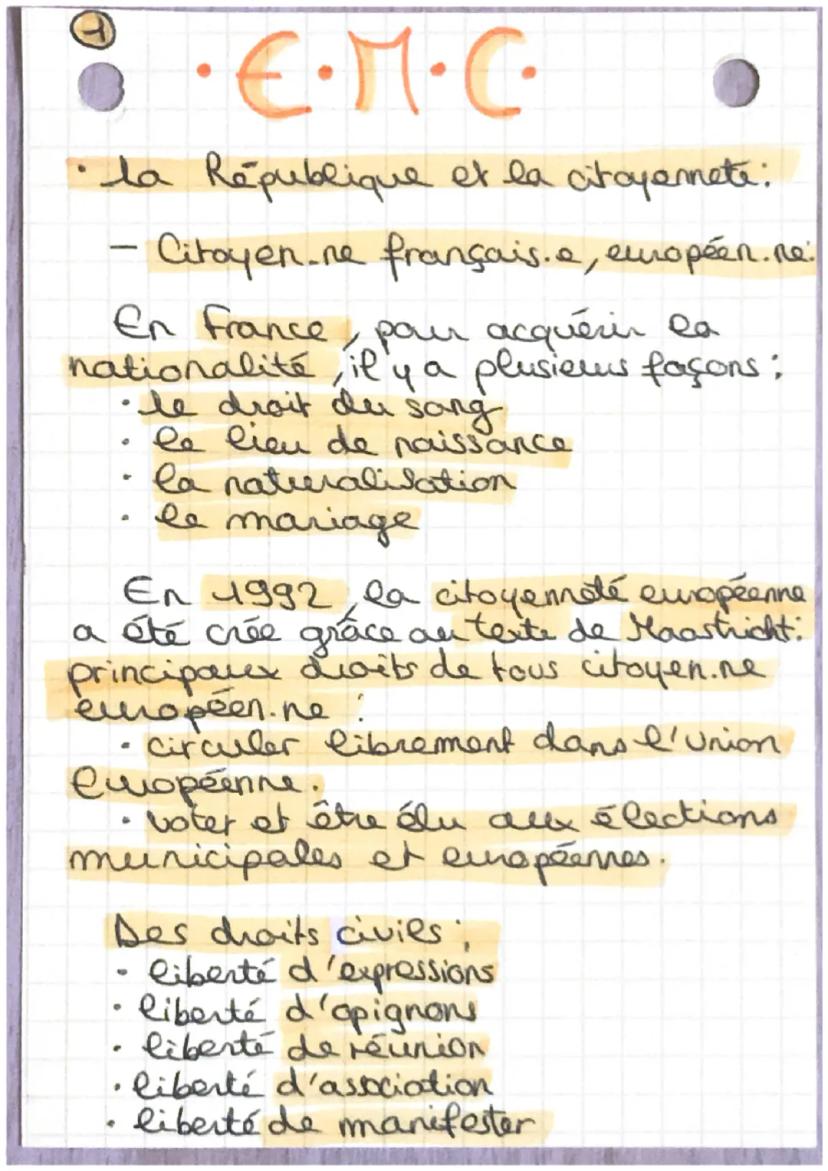 1
·E·M·C·
· la République et la citoyenneté :
– Citoyen.ne français.e, européen.ne:
En France, pour acquérir la
nationalité, il y a plusieurs façons :
· le droit du sang
· le lieu de naissance
· la naturalisation
· le mariage
En 1992, la citoyenneté européenne
a été crée grâce au texte de Maastricht:
principaux droits de tous citoyen.ne
européen.ne :
· circuler librement dans l'Union
Européenne.
· voter et être élu aux élections
municipales et européennes.
Des droits civils :
· liberté d'expressions
· liberté d'opignons
· liberté de réunion
· liberté d'association
· liberté de manifester